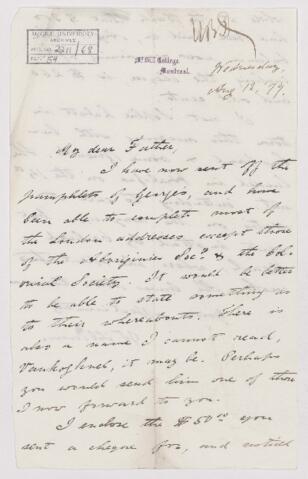 McGILL UNIVERSITY
ARCHIVES
ACC. NO. 2211/68
REF. 54
McGill College
Montreal.
Wednesday,
Aug 13, 79.
My dear Father,
I have now sent off the
pamphlets of Georges, and have
been able to complete most of
the London addresses, except those
of the Aborigines Soc.y & the Col-
onial Society. It would be better
to be able to state something as
to their whereabouts. There is
also a name I cannot read,
it may be. Perhaps
you would send him one of those
I now forward to you.
I enclose the $50.00 you
sent a cheque for, and